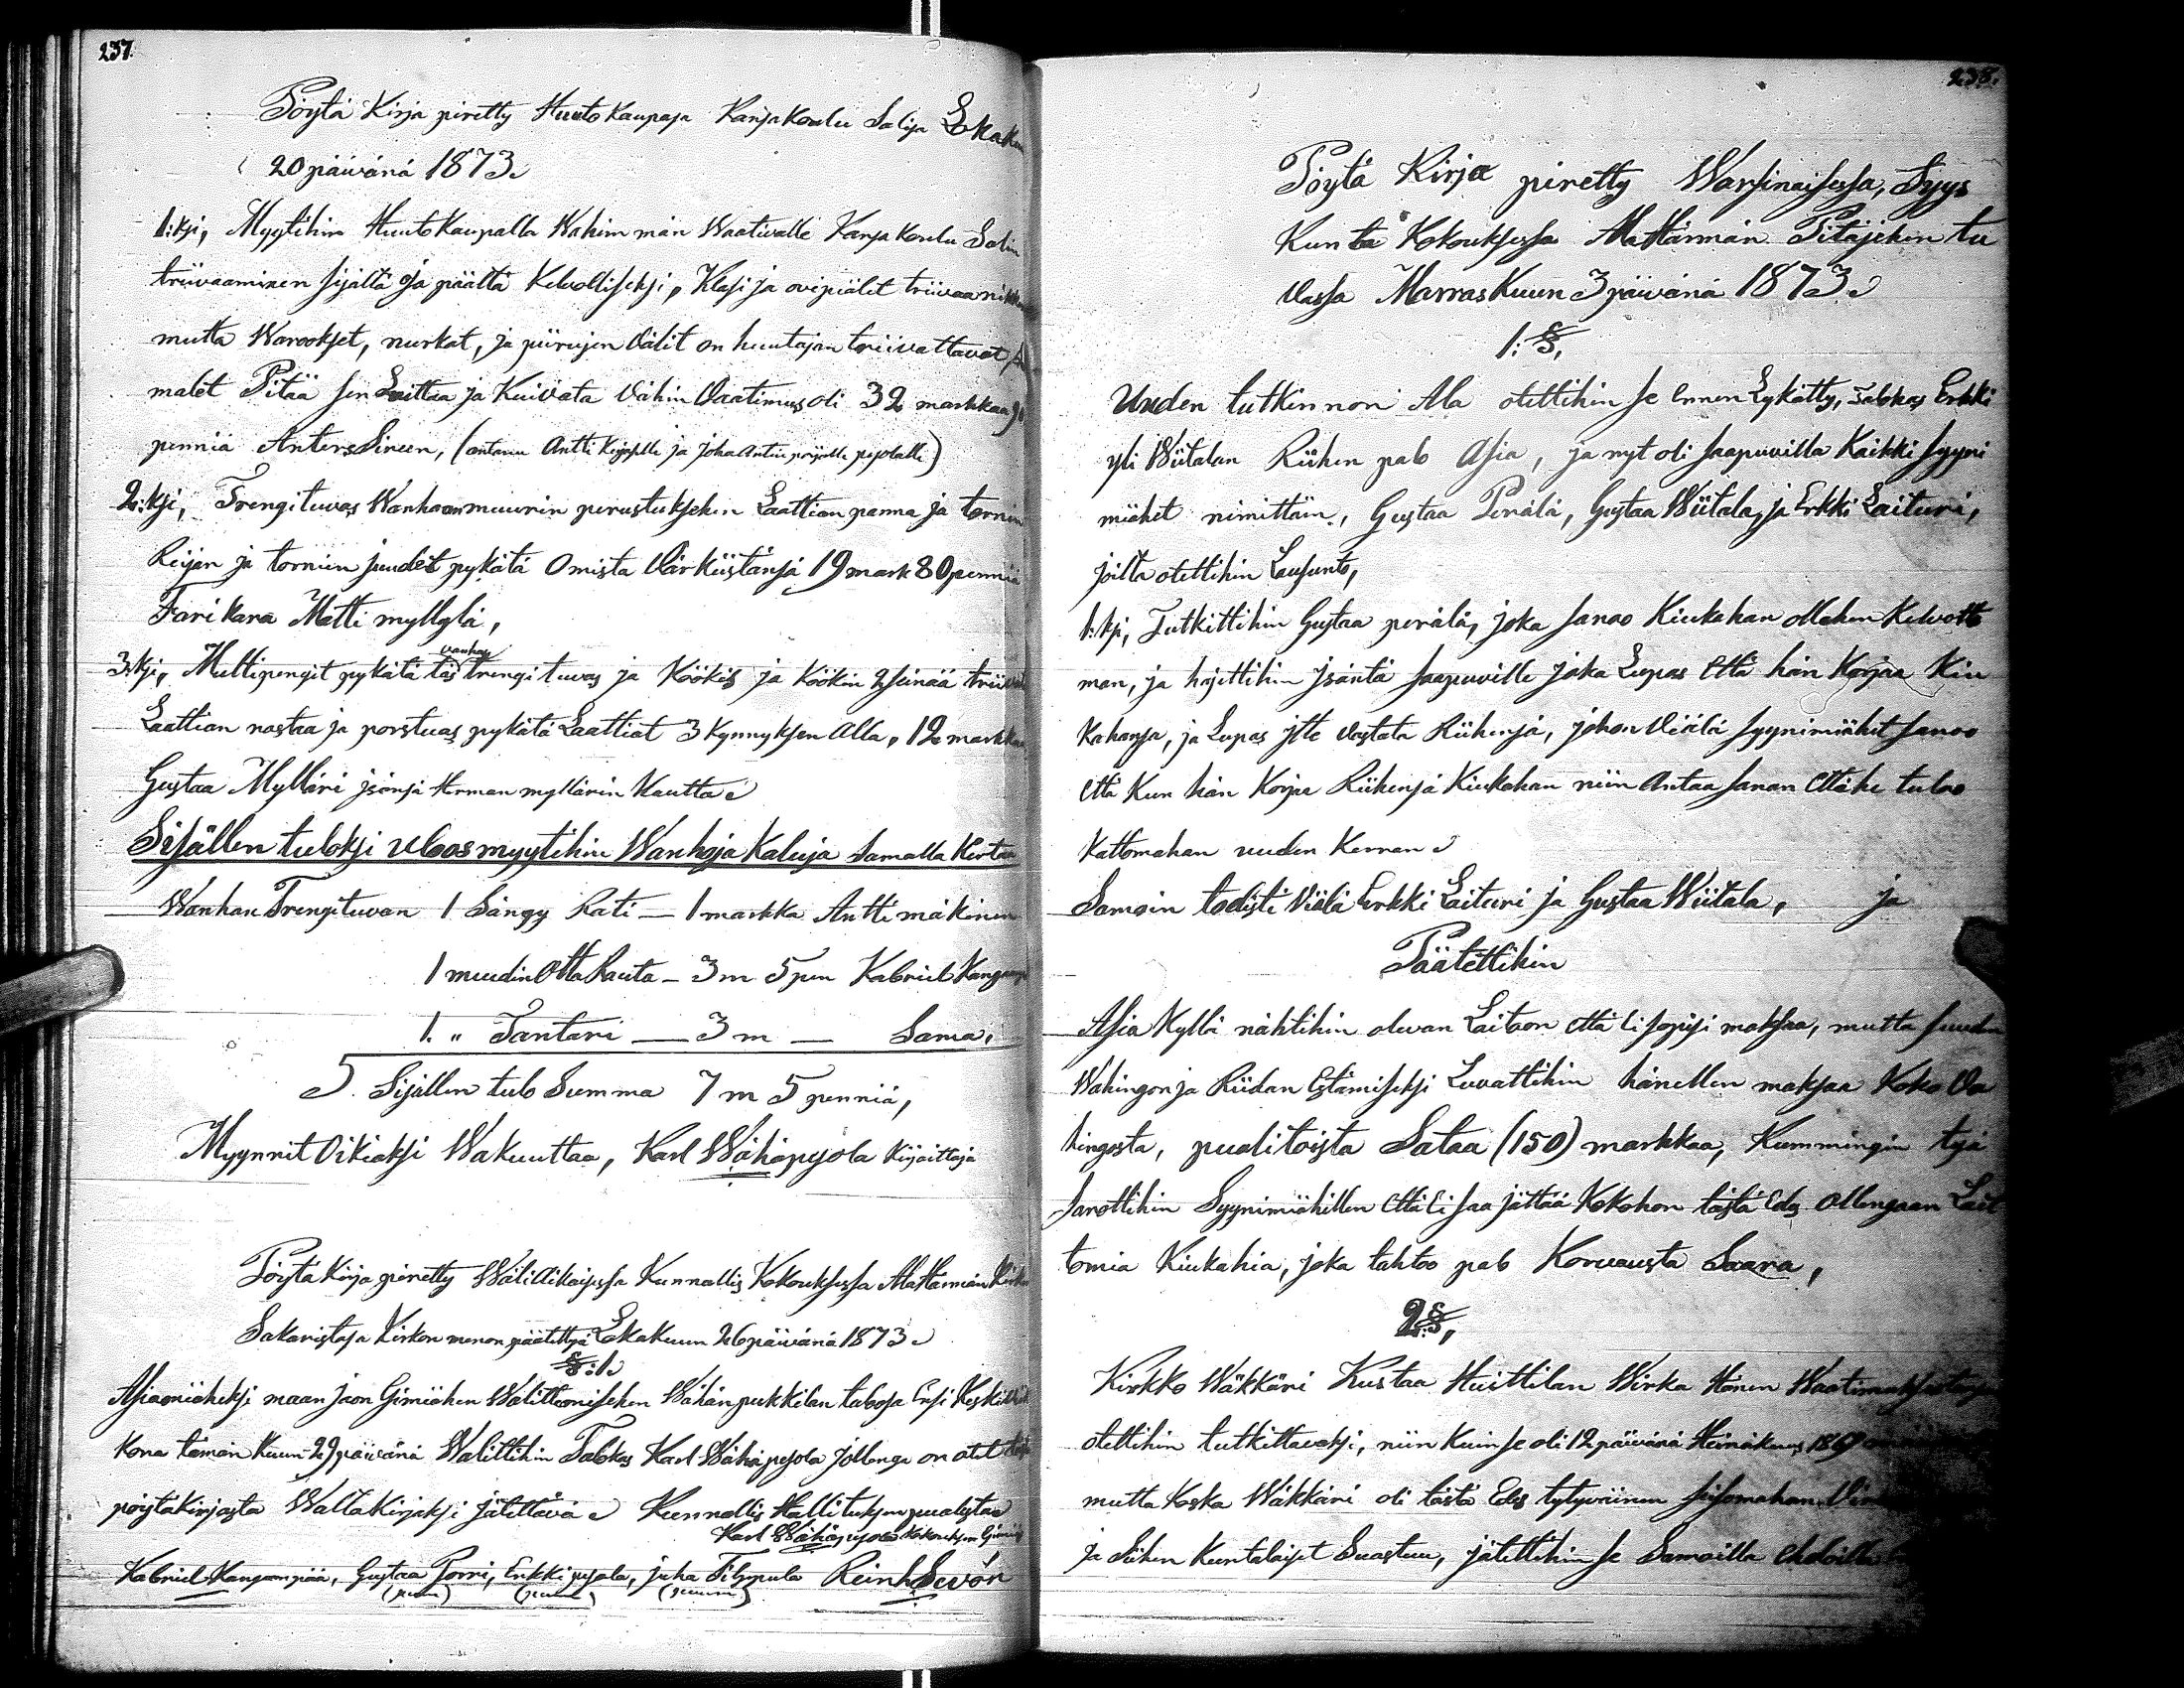 237.
Pöytä Kirja piretty Huuto Kaupasa Kansakoulu Salisa Lokakuu
20 päivänä 1873.
1:ksi, Myytihin Huutokaupalla Wähimmän Waativalle Kansakoulu Salin
triivaaminen sisältä ja päältä Kelvolliseksi, Klasi ja ovipiälet triivaa
mutta Warookset, nurkat, ja piirujen välit on huutajan triivattavat
malet Pitää sen Laittaa ja Kuivata Vähin Vaatimus oli 32 markkaa
penniä Anters Sireen, (antanu Antti Keisille ja Joha Antin pojalle pesolalle)
2:ksi, Trengituvas Wanhaan muurin perustuksehen Laattian panna ja tornin
Reijän ja torniin suudet pykätä Omista Värkiistänsä 19 mark 80 penniä
Farikara Matti myllylä,
3:ksi, Multipengit pykätä täs vanhas trengituvas ja Köökis ja Köökin 2 seinää
Laattian nastaa ja porstuas pykätä Laattiat 3 Kynnyksen Alla, 12 markkaa
Gustaa Mylläri isänsä Herman myllärin Kautta
Sisällen tuloksi Uloos myytihin Wanhoja Kaluja samalla Kertaa
Wanhan Trengituvan 1 Sängy Rati — 1 markka Antti mäkinen
1 muudin Otta Rauta — 3 m 5 pen Kabriel
1. " Tantari — 3 m — Sama,
5. Sisällen tulo Summa 7 m 5 penniä,
Myynnit Oikiaksi Wakuuttaa, Karl Wähäpesola Kirjoittaja
Pöytä Kirja piretty Wälillikaisessa Kunnallis Kokouksessa Alattärmän
Sakaristosa Kirkon menon päätettyä Lokakuun 26 päivänä 1873
§:1.
Asiamiäheksi maan jaon Gimiähen Walittemisehen Wähänpukkilan talosa Ensi Keskiviik
kona tämän Kuun 29 päivänä Walittihin Talokas Karl Wähäpesola jollenga on otet
pöytäkirjasta Waltakirjaksi jätettävä Kunnallis Hallituksen puolesta
Karl Wähäpesola Kokouksen
Kabriel Kangasnpää, Gustaa Porri, Erkki pesola, juha Filppula Reinh Sevón
(puum) (puum) (puum)
238.
Pöytä Kirja piretty Warsinaisessa, Syys
Kunta Kokouksessa Alattärmän Pitäjihen tu
vassa Marras Kuun 3 päivänä 1873
1: §,
Uuden tutkinnon Ala otettihin se Ennen Lykätty, Talokas Erkki
yli Wiitalan Riihen palo Asia, ja nyt oli saapuvilla Kaikki Syyni
miähet nimittäin, Gustaa Perälä, Gustaa Wiitala, ja Erkki Laituri,
joilta otettihin Lausunto,
1:ksi, Tutkittihin Gustaa perälä, joka sanoo Kiukahan ollehen Kelvotto
man, ja hajettihin isäntä saapuville joka Lupas Että hän Korjaa Kiu
kahansa, ja Lupas itte Vastata Riihensä, johon Viälä syynimiähet sanoo
Että Kun hän Korjaa Riihensä Kiukahan niin Antaa sanan Että he tuloo
Kattomahan uuden Kerran
Samoin todisti Viälä Erkki Laituri ja Gustaa Wiitala, ja
Päätettihin
Asia Kyllä nähtihin olevan Laitoon että Ei sopisi maksaa, mutta suuden
Wahingon ja Riidan Estämiseksi Luvattihin hänellen maksaa Koko Va
hingosta, puolitoista Sataa (150) markkaa, Kummingin tyä
sanottihin Syynimiähillen että Ei saa jättää Kokohon tästä Edes Ollengaan Lait
tomia Kiukahia, joka tahtoo palo Korvausta Saara,
2:§,
Kirkko Wäkkäri Kustaa Huittilan Wirka Hänen
otettihin tutkittavaksi, niin Kuin se oli 12 päivänä Heinäkuus 1869
mutta Koska Wäkkäri oli tästä Edes tytyväinen
ja Siihen Kuntalaiset Suastuu, jätettihin se Samoilla Ehdoilla